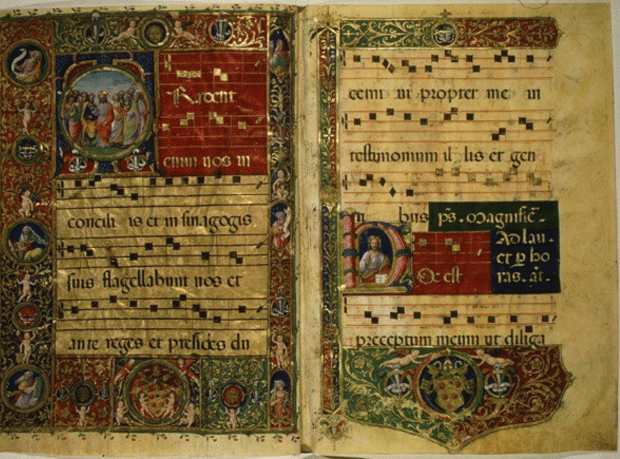 TRadent
enim uos in
concili is et in sinagogis
suis flagellabunt uos et
ante reges et presides du
cemi ni propter me in
testimonium il lis et gen
ti bus ps. Magnific.
Ad lau.
et p ho
HOc est ras. añ.
preceptum meum ut diliga